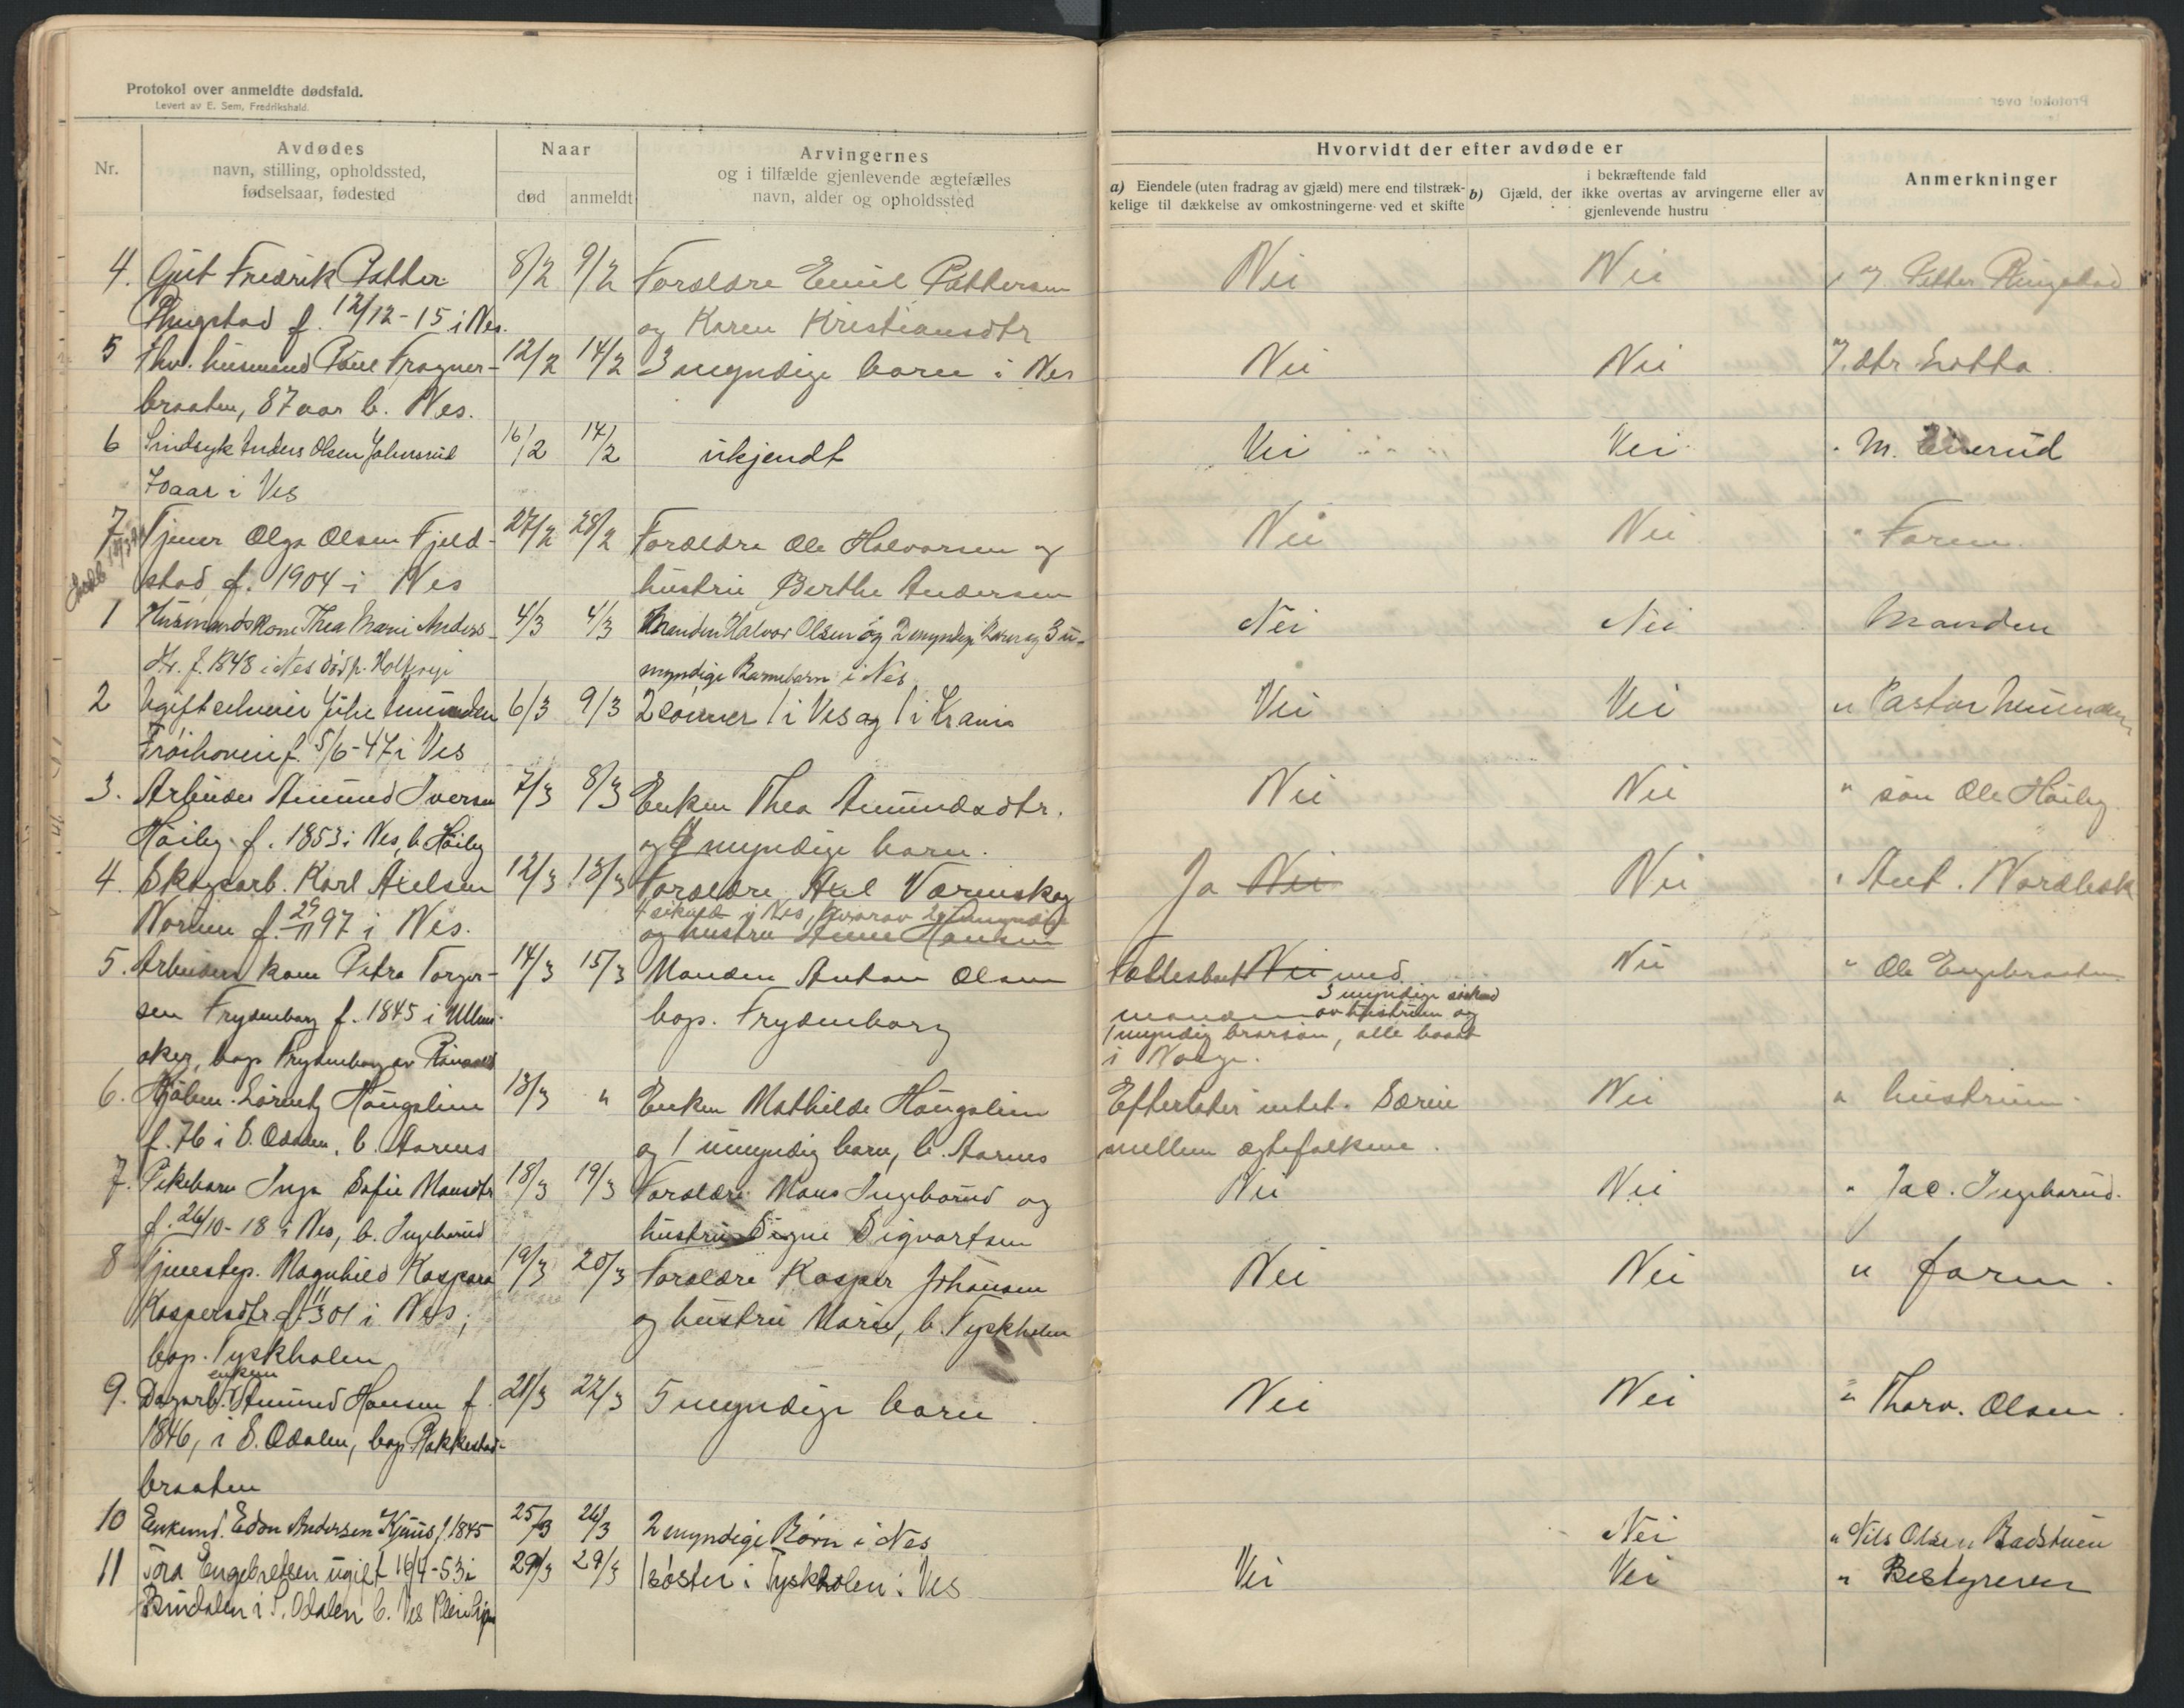 Protokol over anmeldte dødsfald.
Levert av E. Sem, Fredrikshald.
Nr.
Avdødes
navn, stilling, opholdssted,
fødselsaar, fødested
Naar
død
anmeldt
Arvingernes
og i tilfælde gjenlevende ægtefælles
navn, alder og opholdssted
Hvorvidt der efter avdøde er
a) Eiendele (uten fradrag av gjæld) mere end tilstræk-
kelige til dækkelse av omkostningerne ved et skifte
b) Gjæld, der i bekræftende fald
ikke overtas av arvingerne eller av
gjenlevende hustru
Anmerkninger
4. Gut Fredrik Petter 8/2 9/2 Forældre Emil Pettersen Nei Nei Petter Ringstad
Ringstad f. 12/12-15 i Nes. og Karen Kristiansdtr
5 Fhv. husmand Paul Fragner- 12/2 14/2 3 myndige barn i Nes Nei Nei dtr Lotta.
braaten, 87 aar b. Nes.
6 Sindsyk Anders Olsen Johnsrud 16/2 14/2 ukjendt Nei Nei M. Eiverud
70 aar i Nes
7 Tjener Olga Olsen Fjeld- 27/2 28/2 Forældre Ole Halvorsen og Nei Nei " Faren.
stad f. 1904 i Nes hustru Berthe Andersen
1 Husmandskone Thea Marie Anders- 4/3 4/3 Manden Halvor Olsen og 2 myndige Barn og 3 u- Nei Nei Manden
dtr. f. 1848 i Nes død p. myndige Barnebarn i Nes
2 Ugift Julie Amundsen 6/3 9/3 2 søsmer 1 i Nes og 1 i Krania Nei Nei " Pastor
f. 5/6-47 i Nes
3. Arbeider Amund Iversen 7/3 8/3 Enken Thea Amundsdtr. Nei Nei " søn Ole Høiby.
Høiby f. 1853 i Nes, b. Høiby og 4 myndige barn.
4. Skogsarb. Karl Axelsen 12/3 13/3 Forældre AxelVærnskog Ja Nei Nei " Ant. Nordbek
4 søskend i Nes, hvorav 2
Normen f. 29/11 97 i Nes. og hustru Anne Hansen
5. Arbeiders kone Petra Torger- 14/3 15/3 Manden Anton Olsen Fællesbot Nei med Nei " Ole Engebraaten
3 myndige søskend
sen Frydenborg f. 1845 i Ullens- bop. Frydenborg manden av hustruen og
1 myndig brorsøn, alle bosat
aker, bop Frydenborg av i Norge.
6. Hjølm. Lorentz Haugslien 13/3 " Enken Mathilde Haugslien Efterlater intet. Særeie Nei " hustruen.
f. 76 i S. Odalen, b. Aarnes og 1 umyndig barn, b. Aarnes mellem ægtefolkene.
7. Pikebarn Inga Sofie Mansdtr 18/3 19/3 Forældre Mons Ingeborud og Nei Nei " Jac. Ingeborud.
f. 26/10-18 i Nes, b. Ingeborud hustru Signe Sigvartsen
8 Tjenestep. Magnhild Kaspara 19/3 20/3 Forældre Kasper Johansen Nei Nei " faren.
Kaspersdtr f. 11/3 01 i Nes; og hustru Marie, b. Tyskholen
bop. Tyskholen
enken
9. Dagarb. Amund Hansen f. 21/3 22/3 5 myndige barn. Nei Nei " Thorv. Olsen.
1846, i S. Odalen, bop Rakkestad-
braaten
10 Enkemd. Edon Andersen Kjuus f. 1845 25/3 26/3 2 myndige Børn i Nes Nei " Nils Olsen Badstuen
11 Tora Engebretsen ugift 16/4-53 i 29/3 29/3 1 søster i Tyskholen i Nes Nei Nei " Bestyreren
i S. Odalen b. Nes Pleiehjem